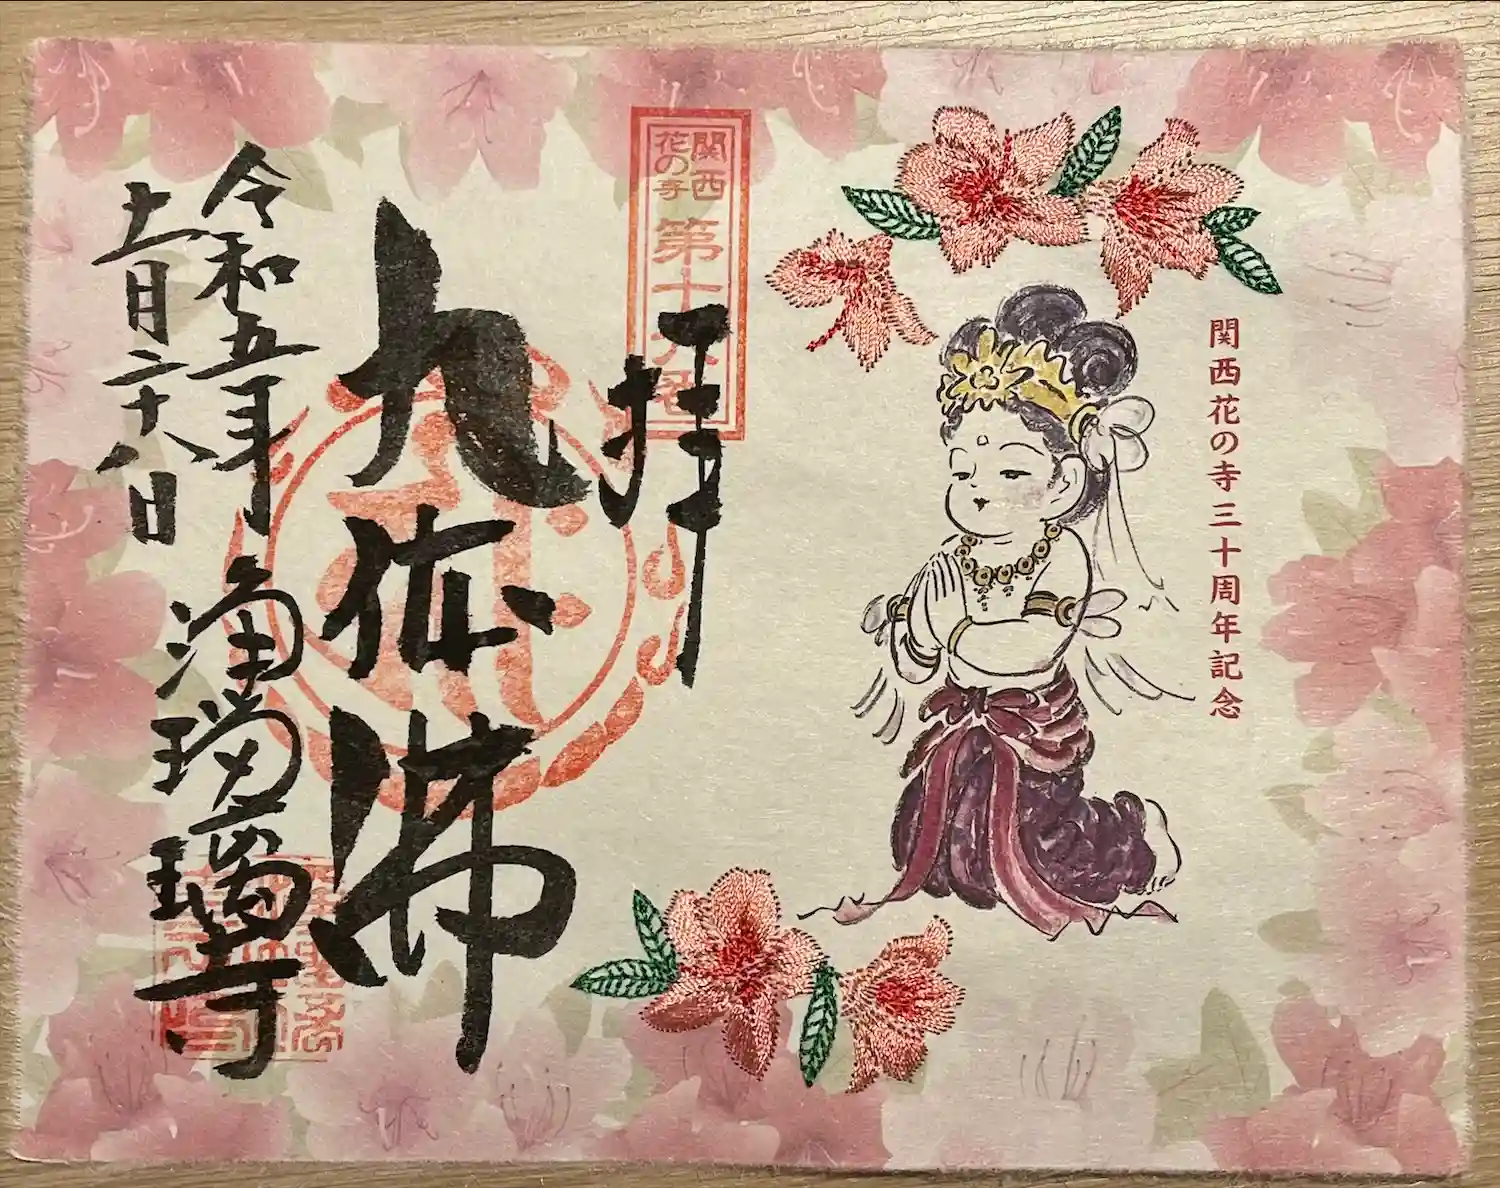 関西花の寺三十周年記念
関西
花の寺
第十六番
拝
九体佛
令和五年
十一月二十八日
浄瑠璃寺